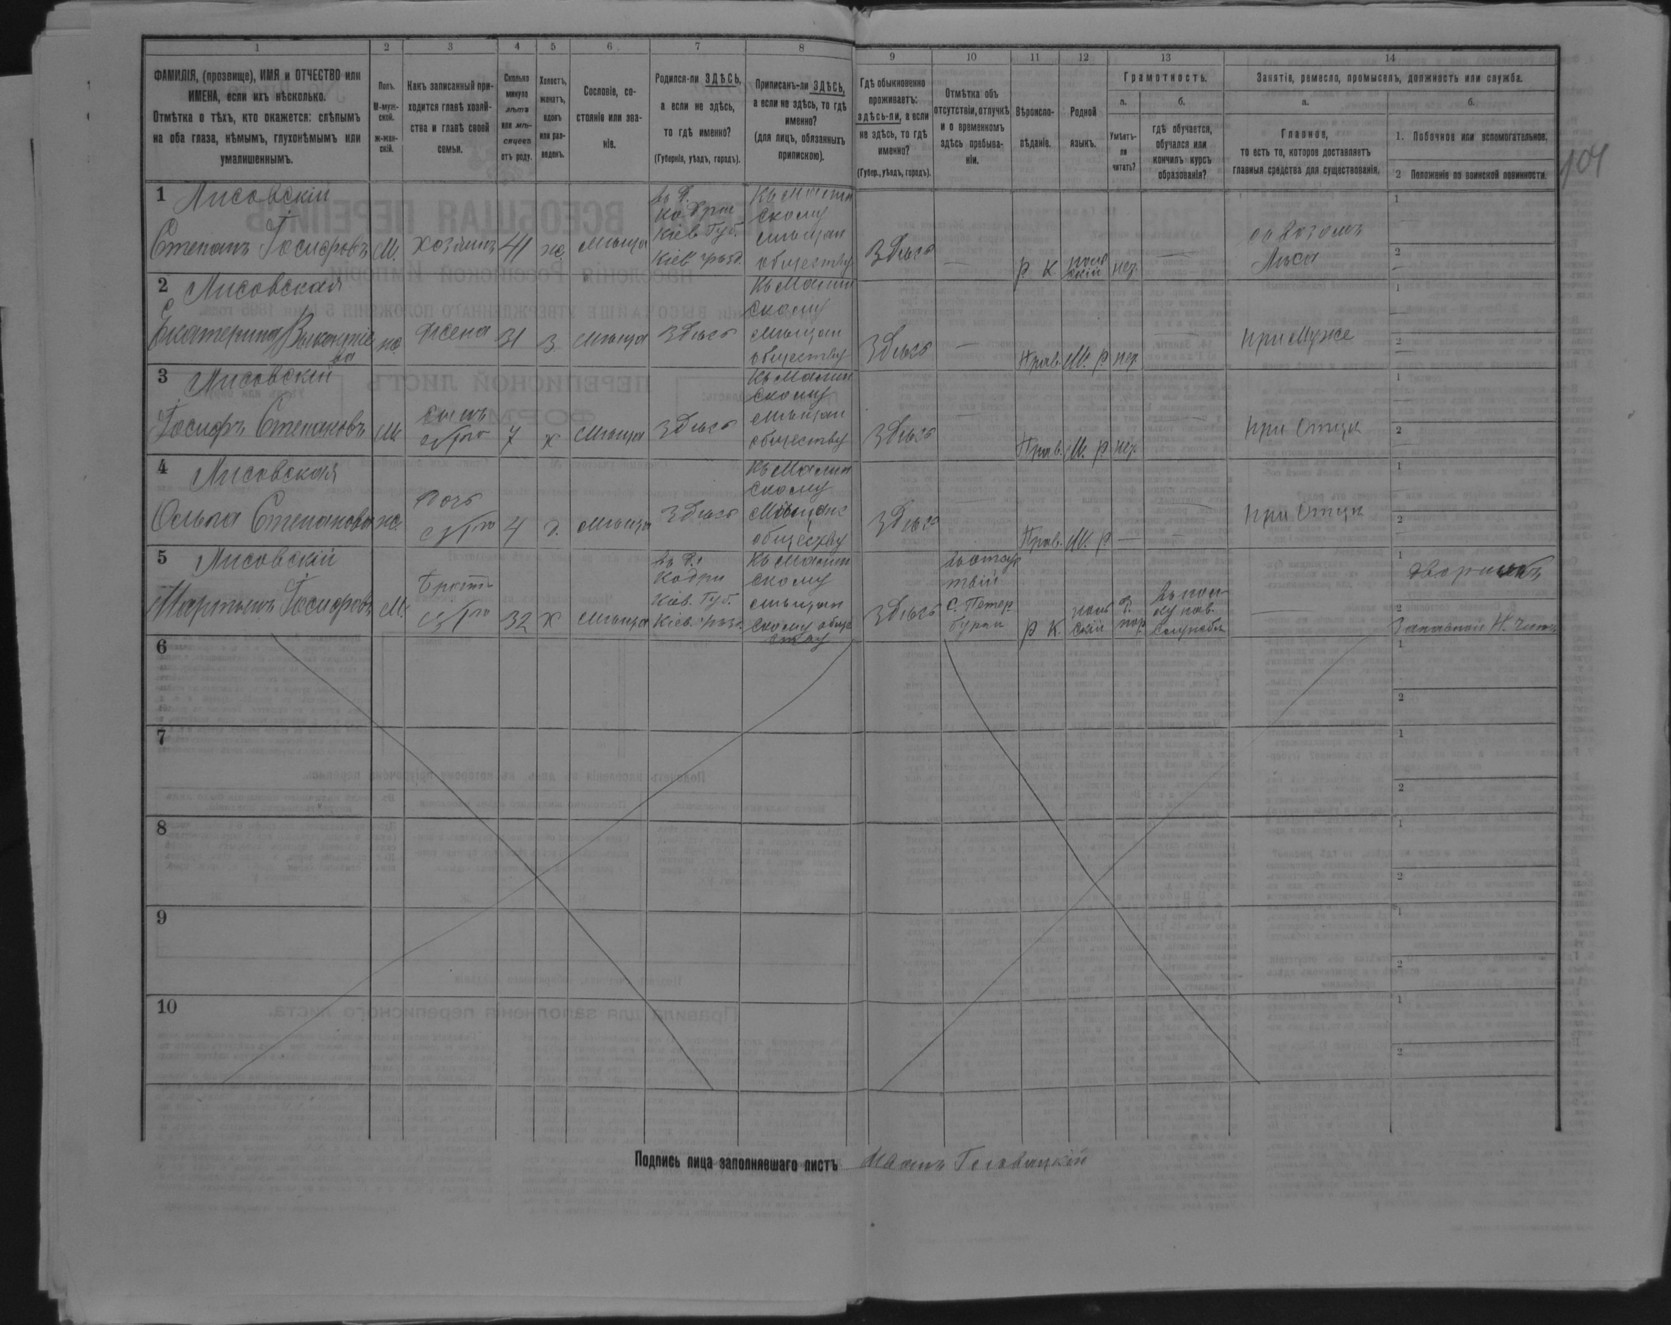 1 2 3 4 5 6 7 8 9 10 11 12 13 14
ФАМИЛІЯ, (прозвище), ИМЯ и ОТЧЕСТВО или ИМЕНА, если ихъ нѣсколько.
Отмѣтка о тѣхъ, кто окажется: слѣпымъ на оба глаза, нѣмымъ, глухонѣмымъ или умалишеннымъ.
Полъ.
М-муж-ской.
ж-жен-скій.
Какъ записанный при-ходится главѣ хозяй-ства и главѣ своей семьи.
Сколько минуло лѣтъ или мѣ-сяцевъ отъ роду.
Холостъ, женатъ, вдовъ или раз-веденъ.
Сословіе, со-стояніе или зва-ніе.
Родился-ли ЗДѢСЬ, а если не здѣсь, то гдѣ именно?
(Губернія, уѣздъ, городъ).
Приписанъ-ли ЗДѢСЬ, а если не здѣсь, то гдѣ именно?
(для лицъ, обязанныхъ припискою).
Гдѣ обыкновенно проживаетъ: здѣсь-ли, а если не здѣсь, то гдѣ именно?
(Губер., уѣздъ, городъ).
Отмѣтка объ отсутствіи, отлучкѣ и о временномъ здѣсь пребыва-ніи.
Вѣроиспо-вѣданіе.
Родной языкъ.
Грамотность.
а.
Умѣетъ-ли читать?
б.
гдѣ обучается, обучался или кончилъ курсъ образованія?
Занятія, ремесло, промыселъ, должность или служба.
а.
Главное,
то есть то, которое доставляетъ главныя средства для существованія.
б.
1. Побочное или вспомогательное.
2 Положеніе по воинской повинности
1 Лисовскій
Степанъ Іосифовъ М. хозяинъ 41 ж. мѣща Кіев. Губ. Кіев. уѣзд. Къ Малин скому мѣщан обществу Здѣсь — Р К поль скій нег. — Лѣса
2 Лисовская
Екатерина ж. жена 31 з. мѣща Здѣсь Къ Малин скому мѣщан обществу Здѣсь — Прав. М. р. нег. при Мужѣ
3 Лисовскій
Іосифъ Степановъ М. сынъ 7 х мѣща Здѣсь Къ Малин скому мѣщан обществу Здѣсь — Прав. М. р. нег. — при Отцѣ
4 Лисовская
Ольга Степанова ж. дочь 4 д. мѣща Здѣсь Къ Малин скому мѣщанс обществу Здѣсь — Прав. М. р — — при Отцѣ
5 Лисовскій
Мартынъ Іосифовъ М. братъ 32 х мѣща Кодри Кіев. Губ. Кіев. уѣзд. Къ Малин скому мѣщан скому обще ству Здѣсь С. Петер бургѣ Р К. поль скій — Запасной Н. чинъ
6
7
8
9
10
Подпись лица заполнявшаго листъ